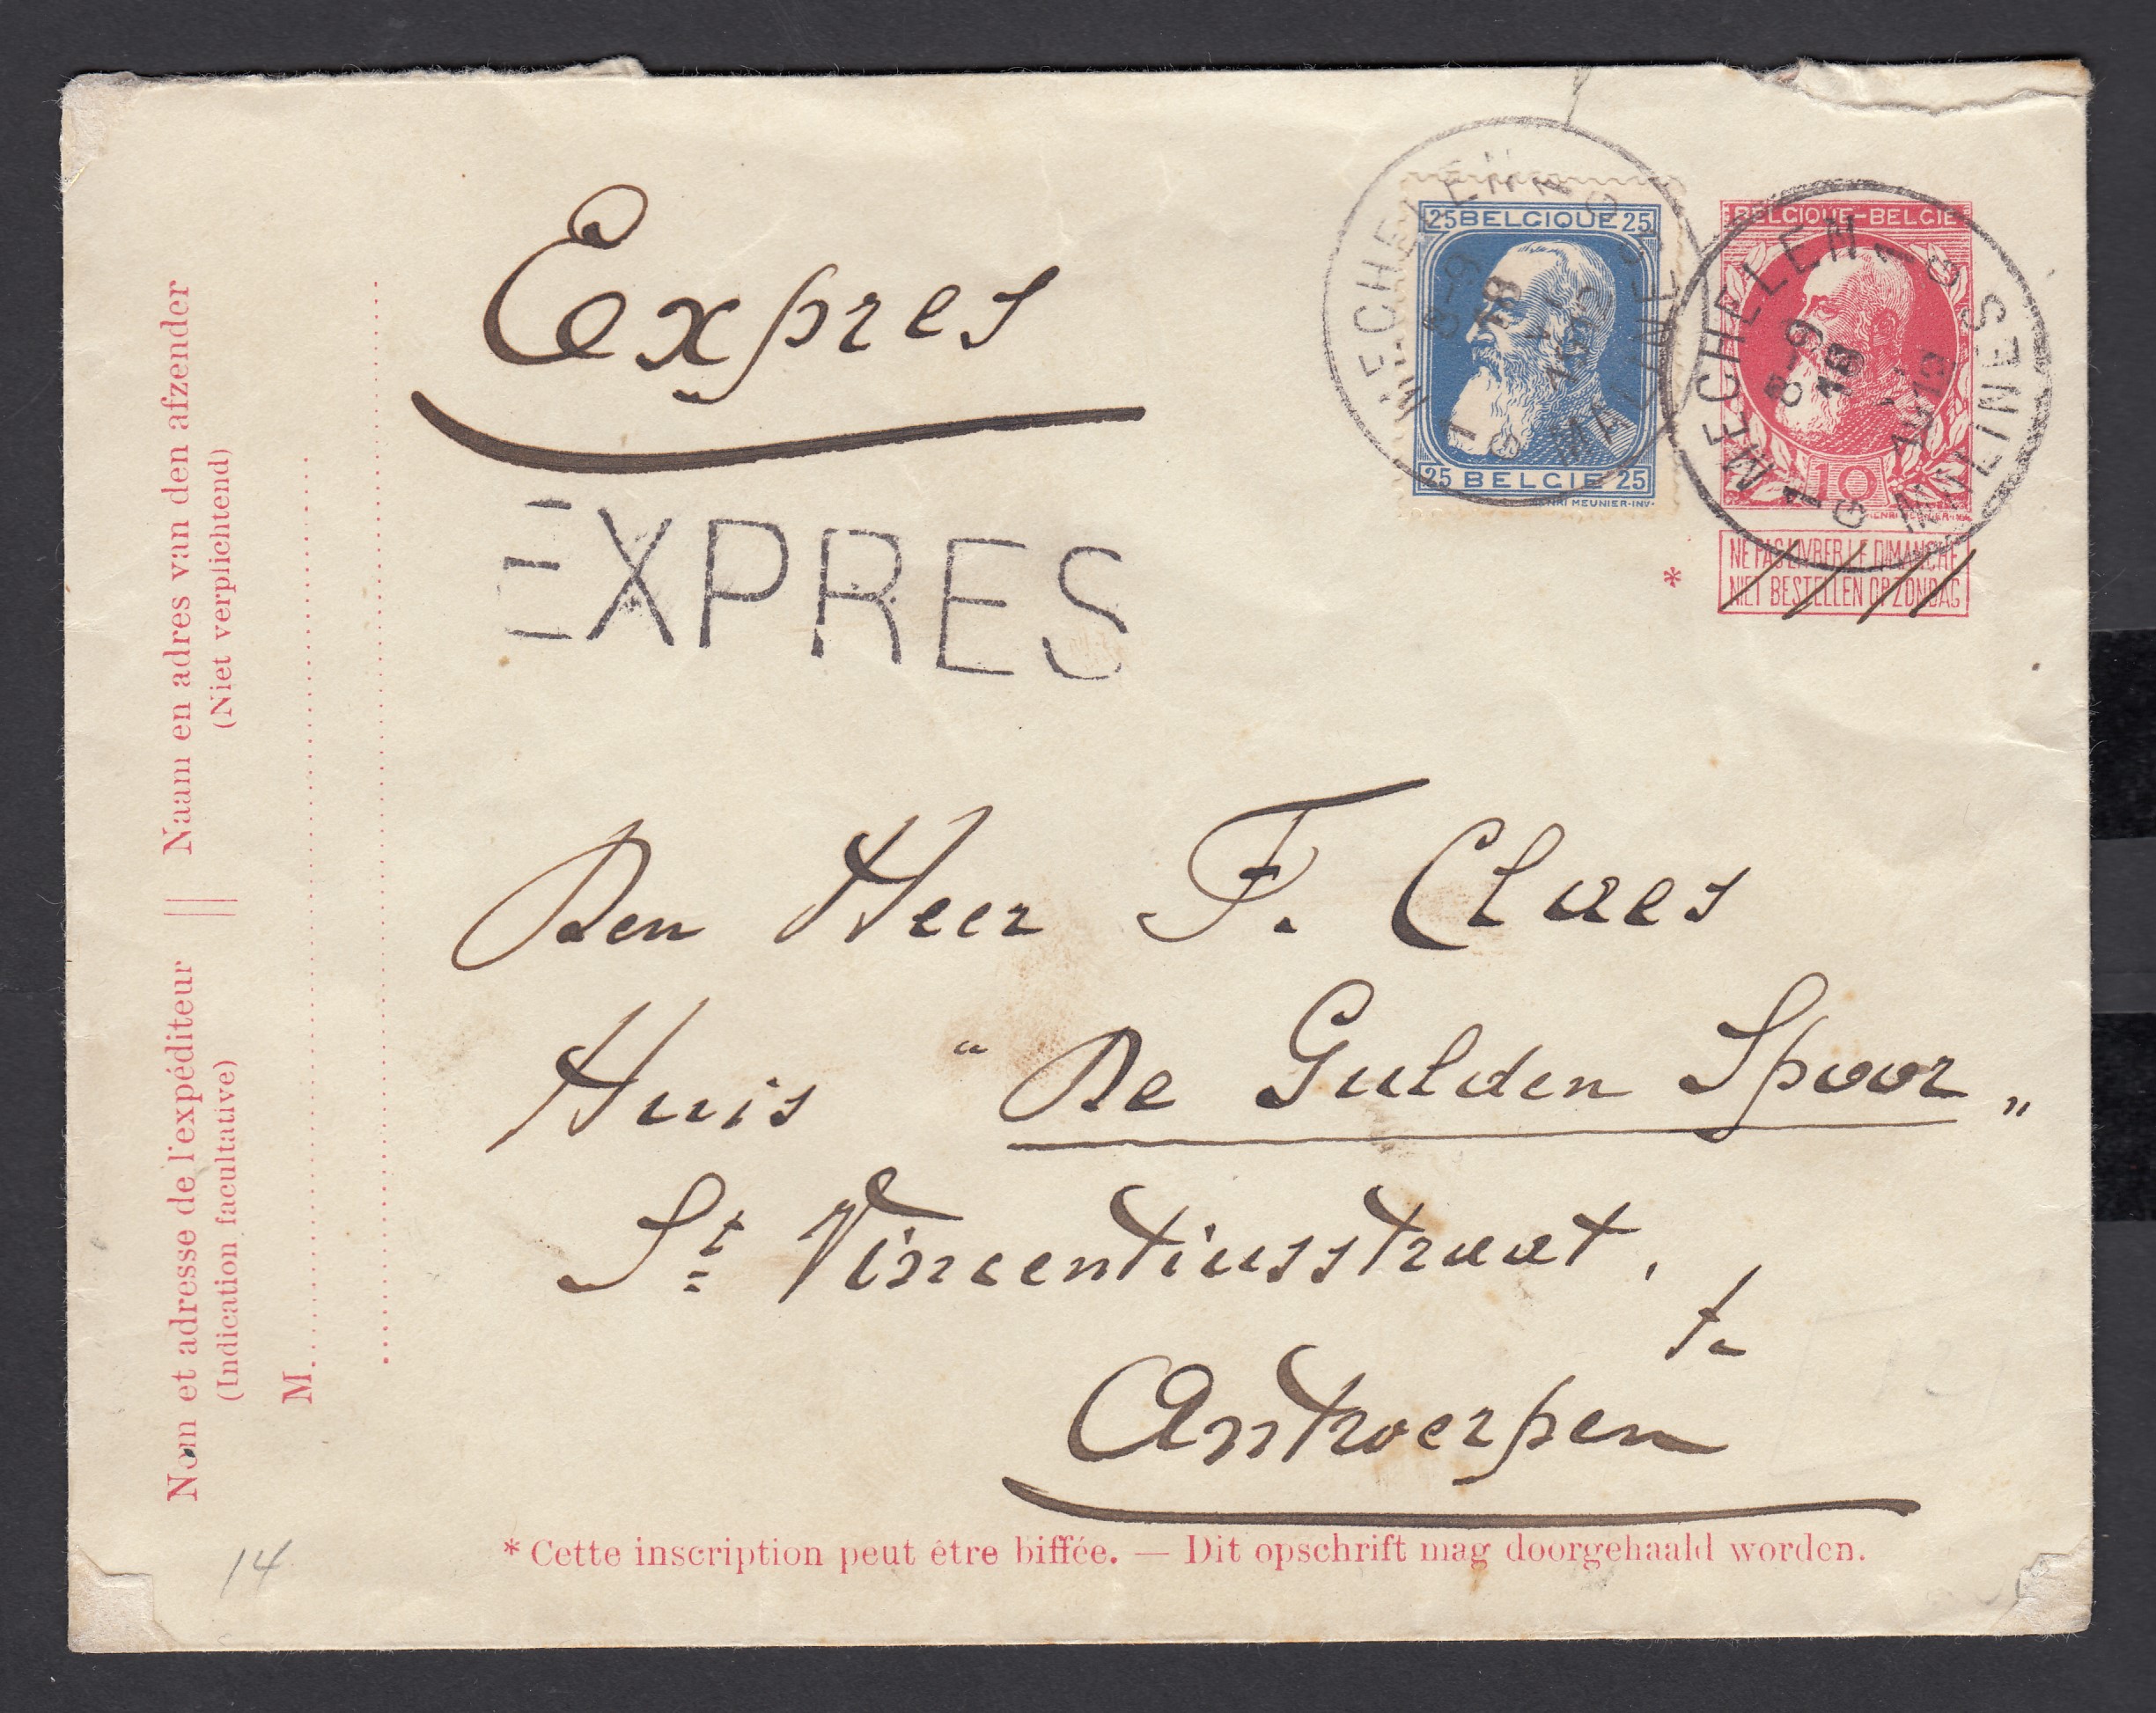 Expres
EXPRES
25 BELGIQUE 25
25 BELGIE 25
BELGIQUE-BELGIE
10
MECHELEN
8-9
18
MALINES
MECHELEN
8-9
18
MALINES
NE PAS LIVRER LE DIMANCHE
NIET BESTELLEN OP ZONDAG
*
Den Heer F. Claes
Huis "De Gulden Spoor"
St Vincentiusstraat,
te
Antwerpen
* Cette inscription peut être biffée. — Dit opschrift mag doorgehaald worden.
Nom et adresse de l'expéditeur || Naam en adres van den afzender
(Indication facultative) (Niet verplichtend)
M.
14